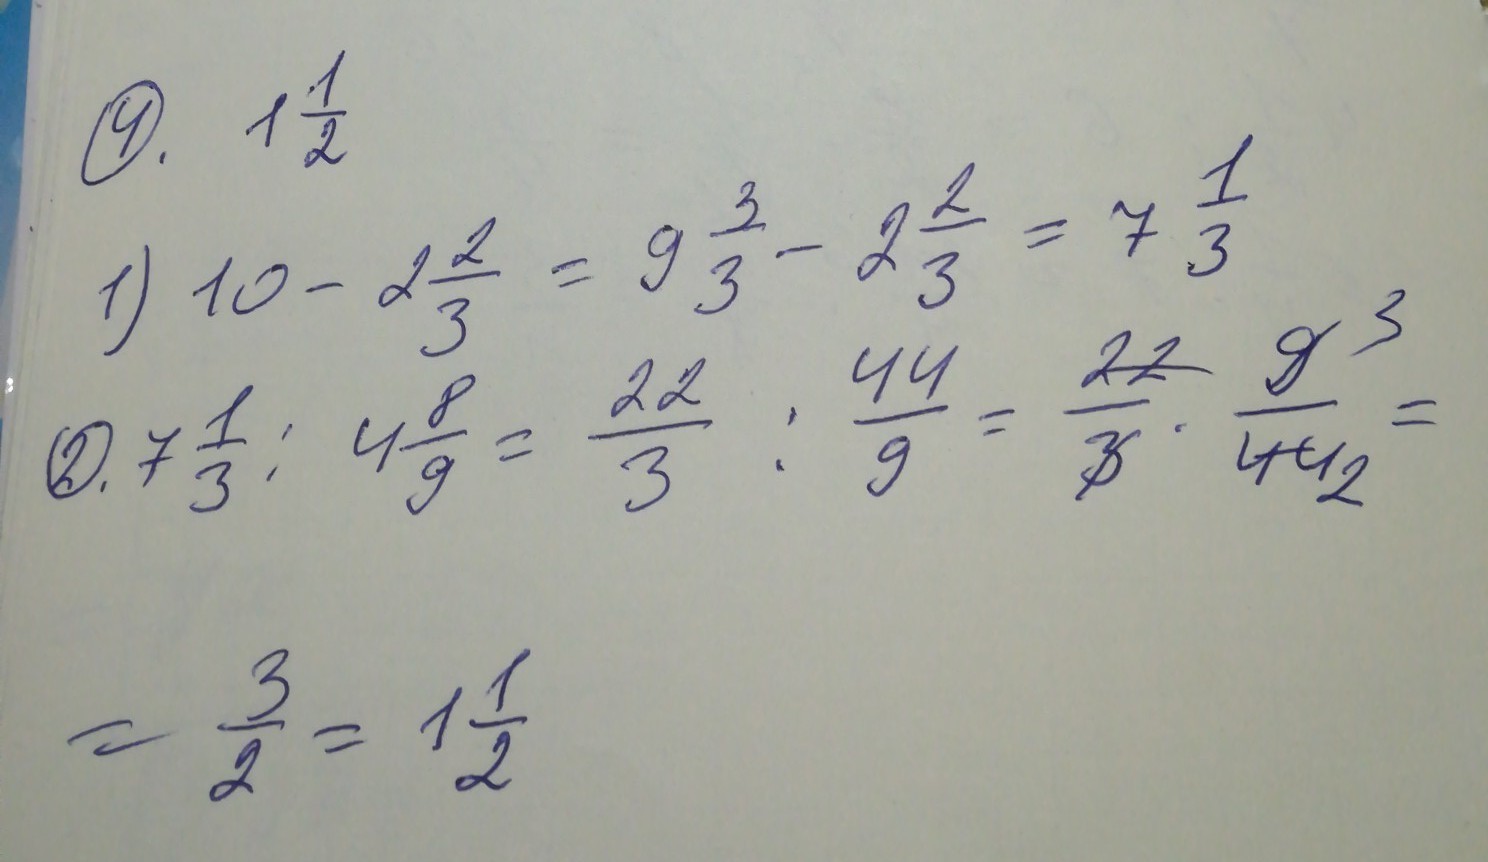 4. 1 1/2
1) 10 - 2 2/3 = 9 3/3 - 2 2/3 = 7 1/3
2. 7 1/3 : 4 8/9 = 22/3 : 44/9 = 22/3 · 9 3/44 2 =
= 3/2 = 1 1/2